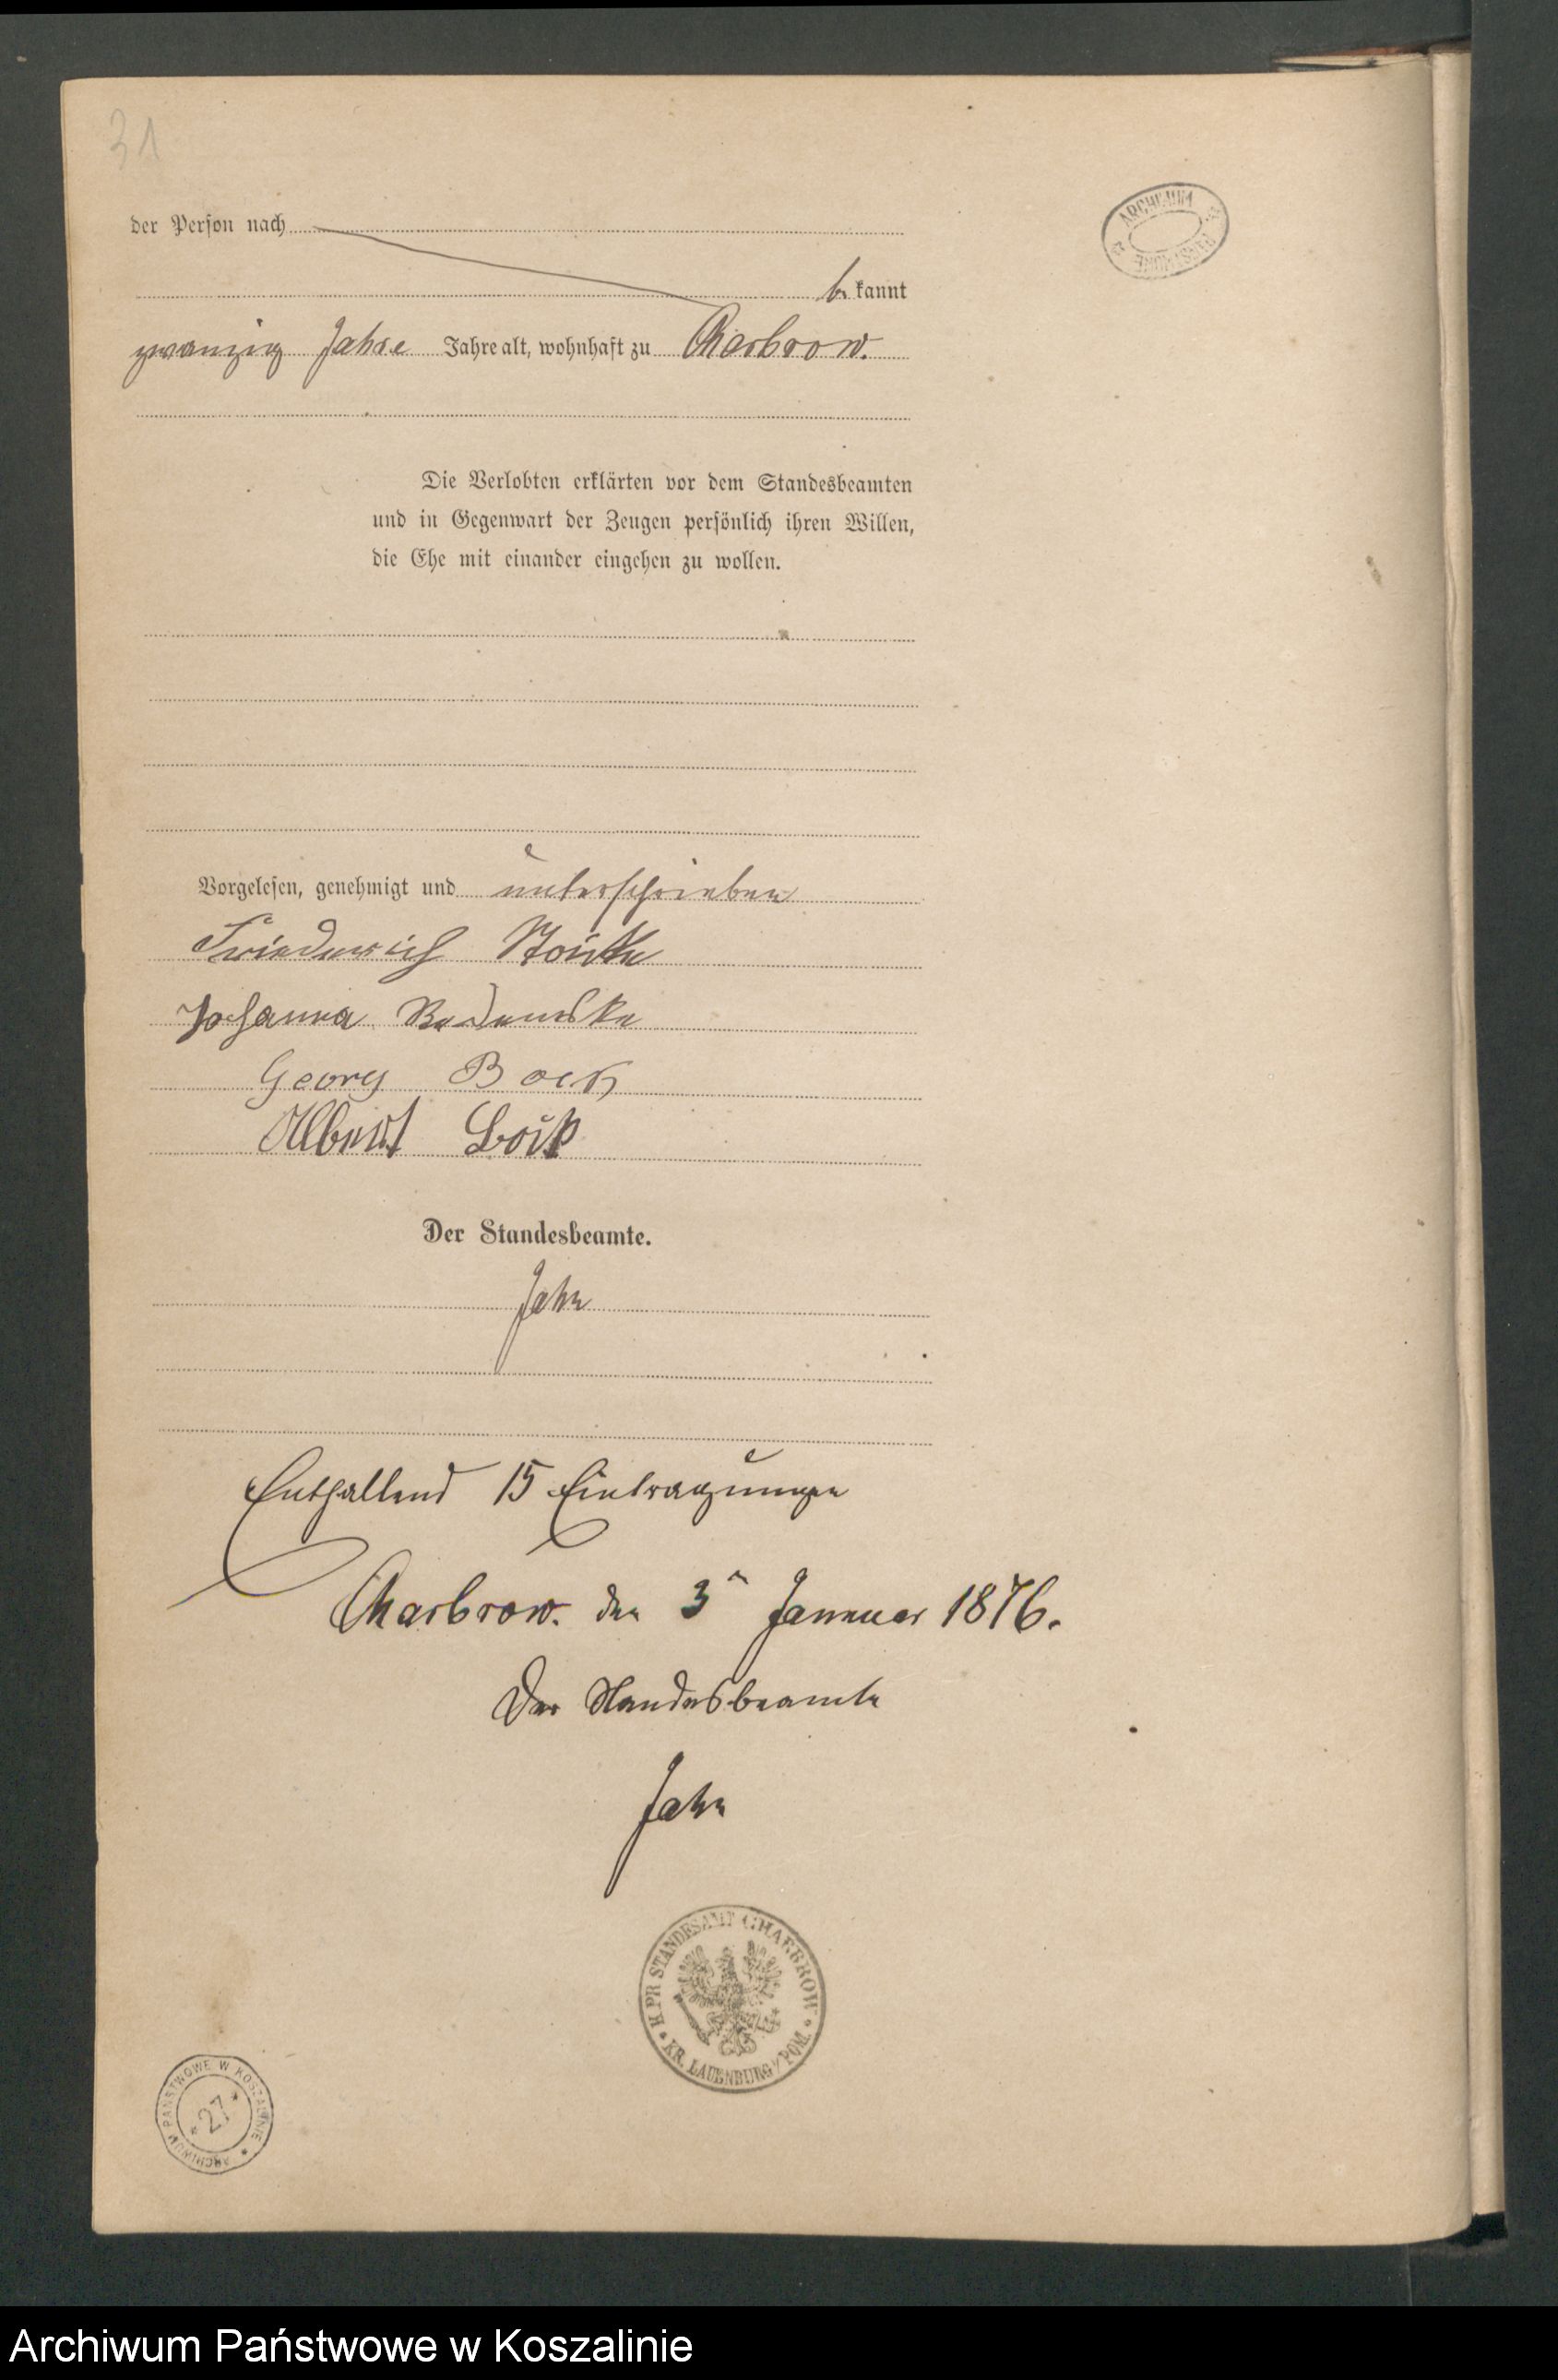 31
ARCHIWUM
der Person nach
be kannt
zwanzig Jahre Jahre alt, wohnhaft zu Charbrow.
Die Verlobten erklärten vor dem Standesbeamten
und in Gegenwart der Zeugen persönlich ihren Willen,
die Ehe mit einander eingehen zu wollen.
Vorgelesen, genehmigt und unterschrieben
Friederich
Johanna
Georg Bock
Albert
Der Standesbeamte.
Jahn
Enthaltend 15 Eintragungen
Charbrow. den 3n Januar 1876.
Der Standesbeamte
Jahn
K. PR STANDESAMT CHARBROW
KR. LAUENBURG / POM.
ARCHIWUM PAŃSTWOWE W KOSZALINIE
* 27 *
Archiwum Państwowe w Koszalinie